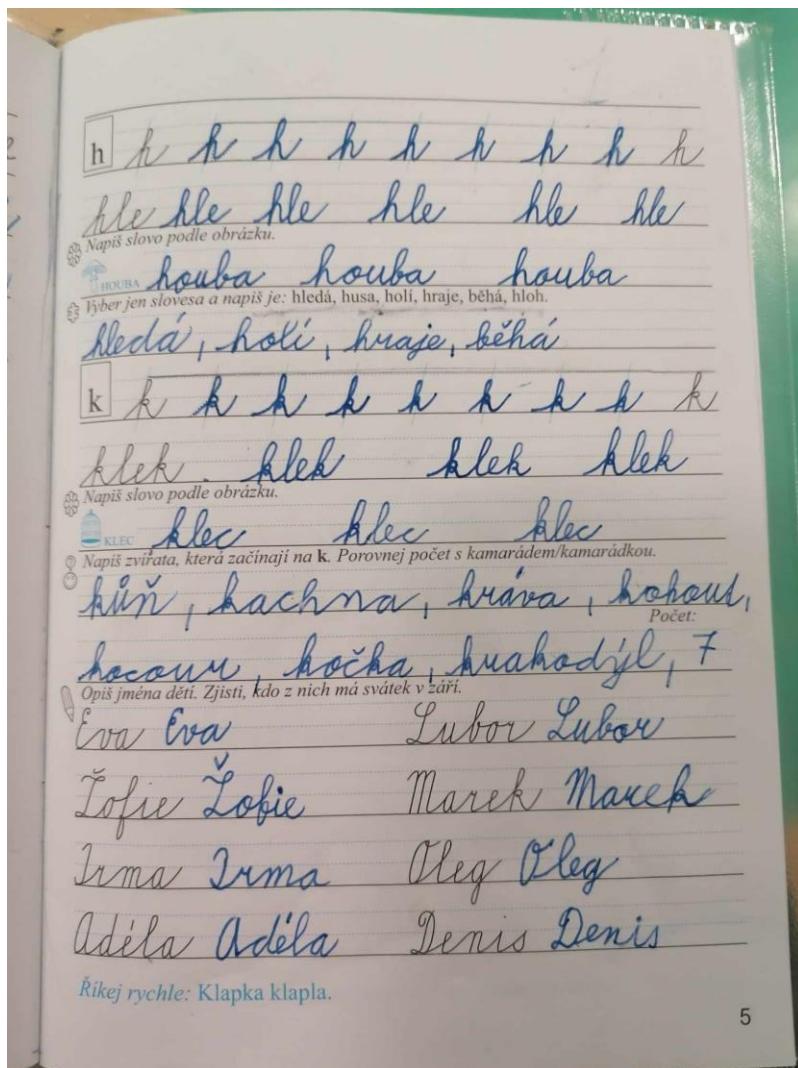 h h h h h h h h h h
hle hle hle hle hle hle
Napiš slovo podle obrázku.
HOUBA houba houba houba
Vyber jen slovesa a napiš je: hledá, husa, holí, hraje, běhá, hloh.
hledá, holí, hraje, běhá
k k k k k k k k k k
klek. klek klek klek
Napiš slovo podle obrázku.
KLEC klec klec klec
Napiš zvířata, která začínají na k. Porovnej počet s kamarádem/kamarádkou.
kůň, kachna, kráva, kohout,
Počet:
kocour, kočka, krakodýl, 7
Opiš jména dětí. Zjisti, kdo z nich má svátek v září.
Eva Eva Lubor Lubor
Žofie Žofie Marek Marek
Irma Irma Oleg Oleg
Adéla Adéla Denis Denis
Říkej rychle: Klapka klapla.
5